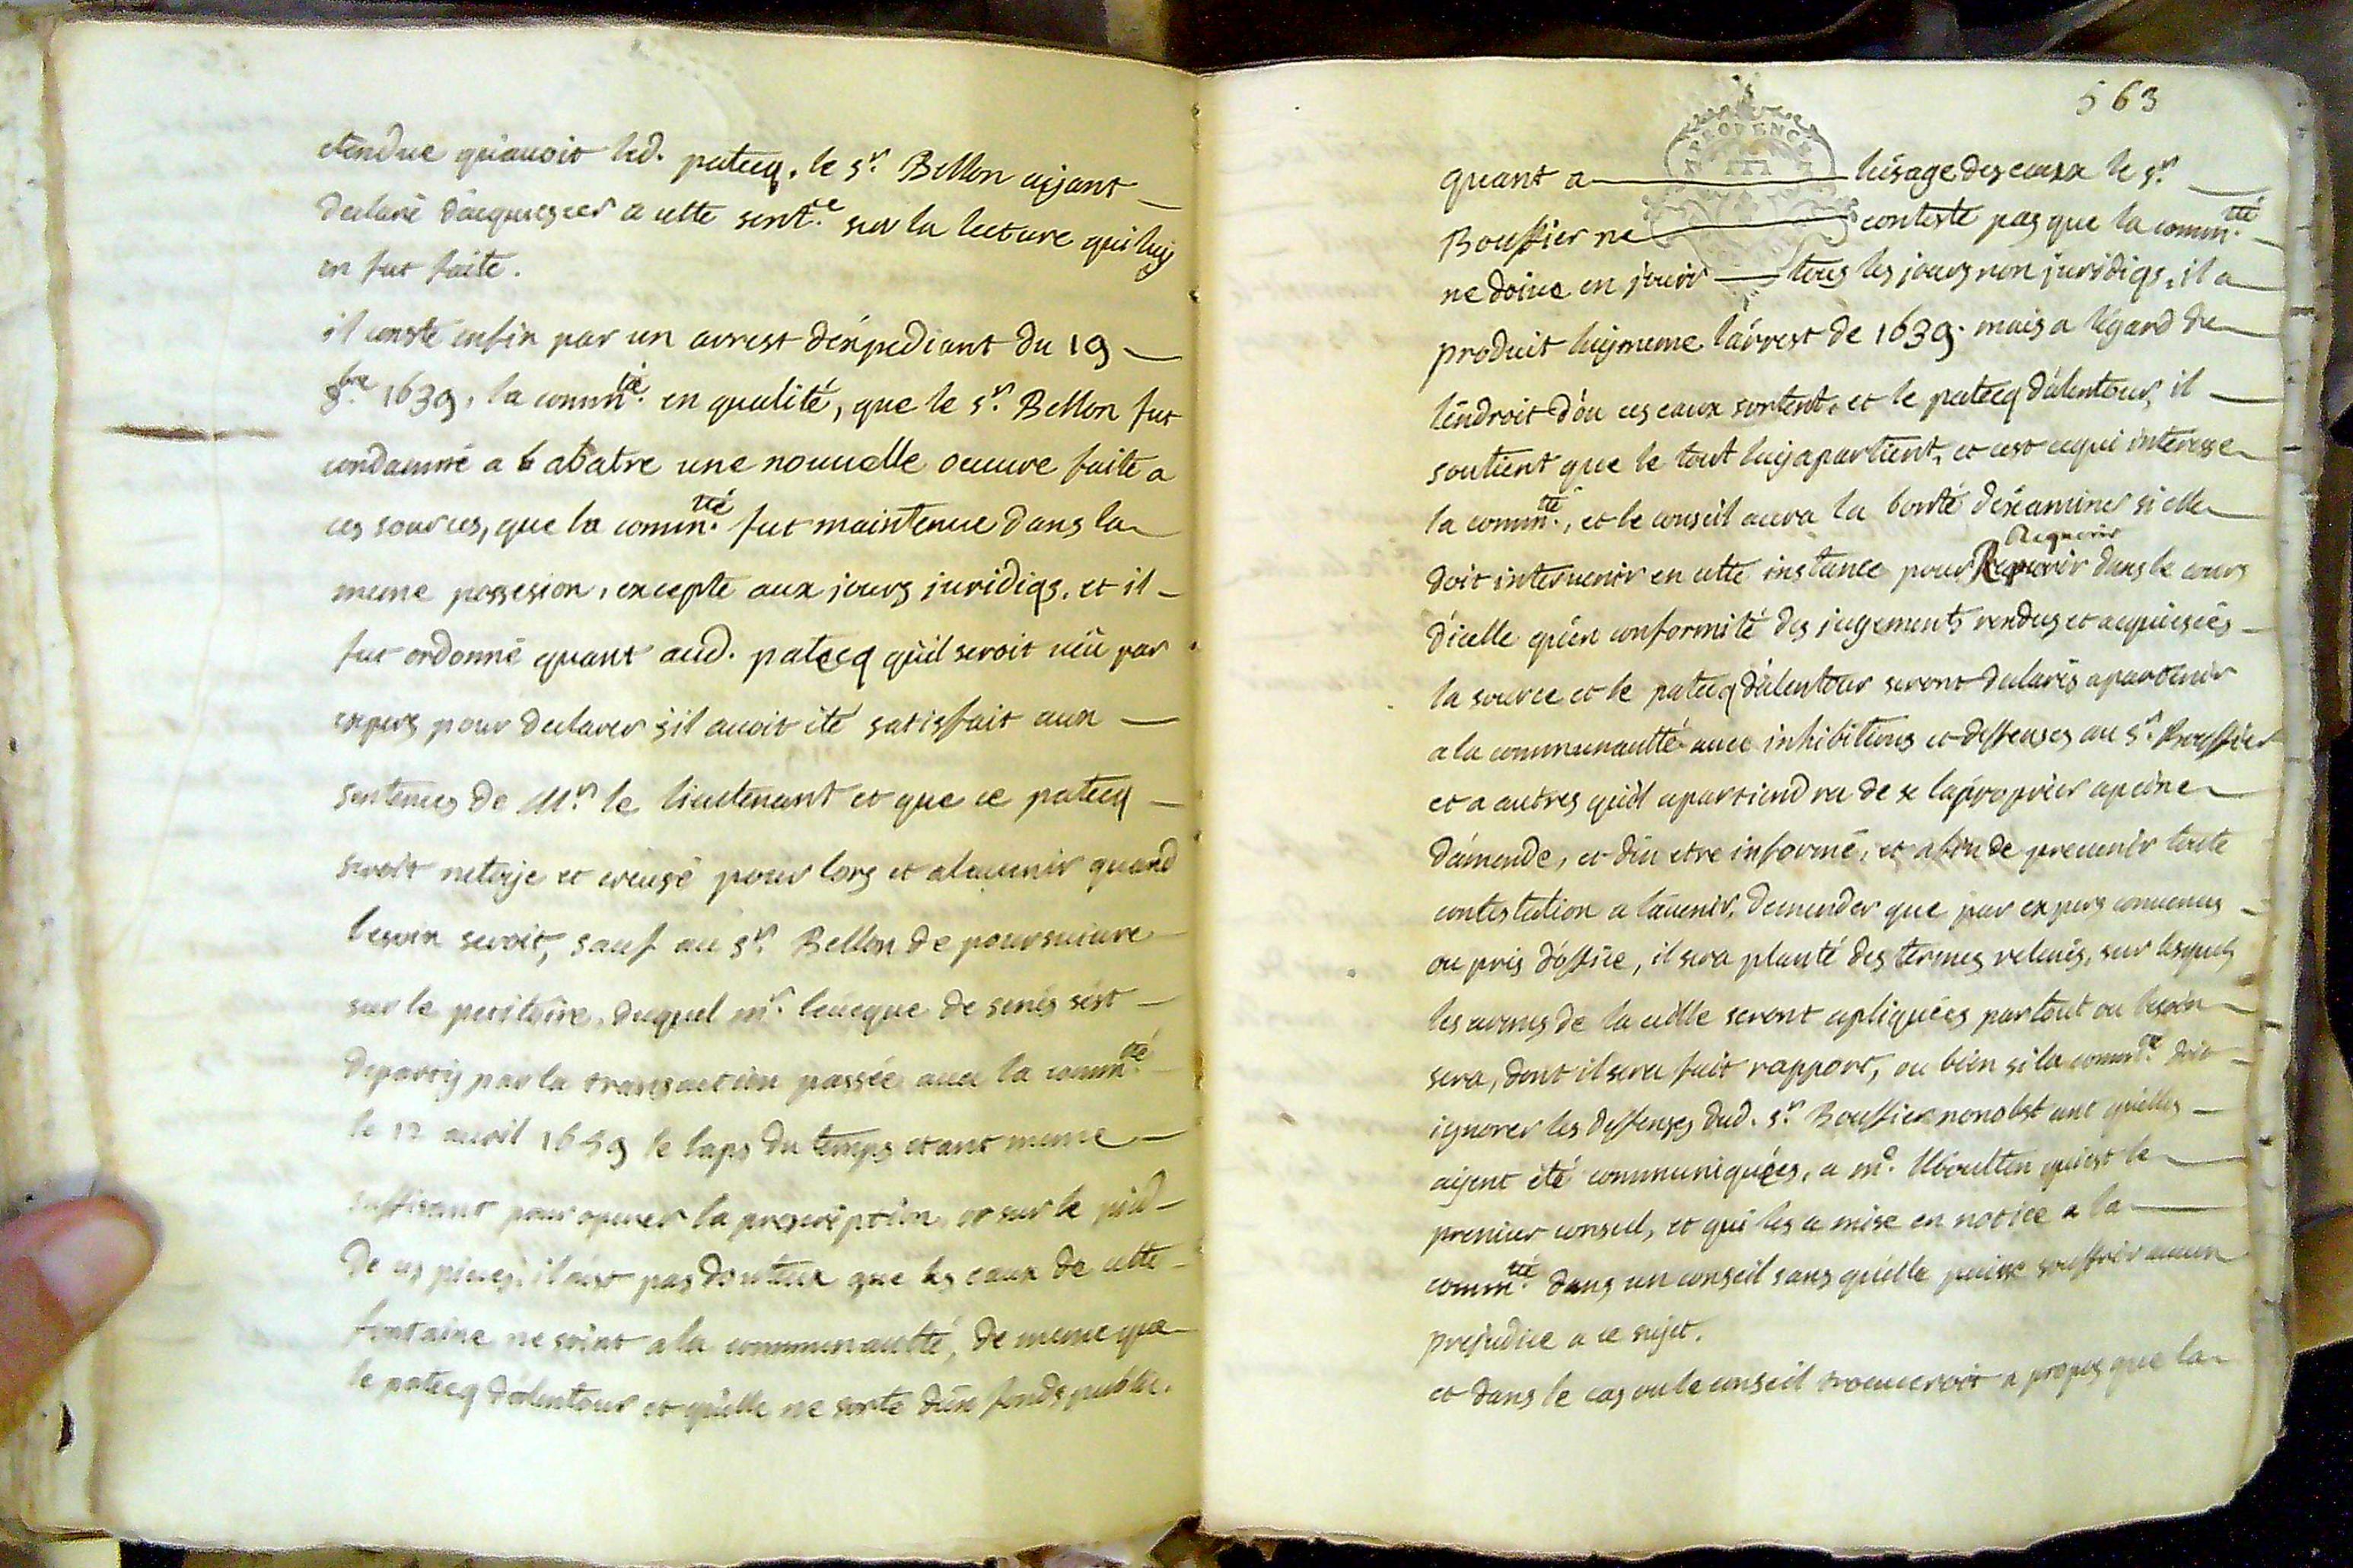 etendue qu'auoit led. patecq. le sr. Bellon aÿant
declaré d'acquiescer a cette sentce. sur la lecture qui luÿ
en fut faite.
il conste enfin par un arrest d'expediant du 19
8bre 1639, la commté. en qualité, que le sr. Bellon fut
condamné a abatre une nouuelle oeuure faite a
ces sources, que la commté. fut maintenue dans la
meme possesion, excepte aux jours juridiqs. et il
fut ordonné quant aud. patecq qu'il seroit uëu par
expers pour declarer s'il auoit été satisfait aux
sentences de Mr. le lieutenant et que ce patecq
seroit netoÿe et creusé pour lors et alauenir quand
besoin seroit, sauf au sr. Bellon de poursuiure
sur le petitoire, duquel mr. l'eueque de senés s'est
departÿ par la transaction passée auec la commté.
le 12 auril 1659 le laps du temps etant meme
suffisant pour operer la prescription, or sur le pied
de ces pieces, il n'est pas douteux que les eaux de cette
fontaine ne soint a la communauté, de meme que
le patecq d'alentour et qu'elle ne sorte d'un fonds public.
563
PROVENCE
quant a l'usage des eaux le sr.
Bouffier ne conteste pas que la commté.
ne doiue en jouir tous les jours non juridiqs, il a
produit luÿmeme l'arrest de 1639. mais a l'égard de
l'endroit d'ou ces eaux sortent, et le patecq d'alentour, il
soutient que le tout luÿ apartient, et c'est ce qui interesse
la commté., et le conseil aura la bonté d'examiner si elle
Requerir
doit interuenir en cette instance pour Requerir dans le cours
d'icelle qu'en conformité des jugements rendus et acquiescés
la source et le patecq d'alentour seront declarés apartenir
a la communautté auec inhibitions et deffenses au sr. Bouffier
et a autres qu'il apartiendra de se l'aproprier a peine
d'amende, et d'en etre informé, et afin de preuenir toute
contestation a l'auenir, demander que par expers conuenus
ou pris d'office, il sera planté des termes releués, sur lesquels
les armes de la uille seront apliquées partout ou besoin
sera, dont il sera fait rapport, ou bien si la commté. doit
ignorer les deffenses dud. sr. Bouffier nonobstant qu'elles
aÿent été communiquées, a me. qui est le
premier consul, et qui les a mise en notice a la
commté. dans un conseil sans qu'elle puisse souffrir aucun
prejudice a ce sujet.
et dans le cas ou le conseil trouueroit a propos que la